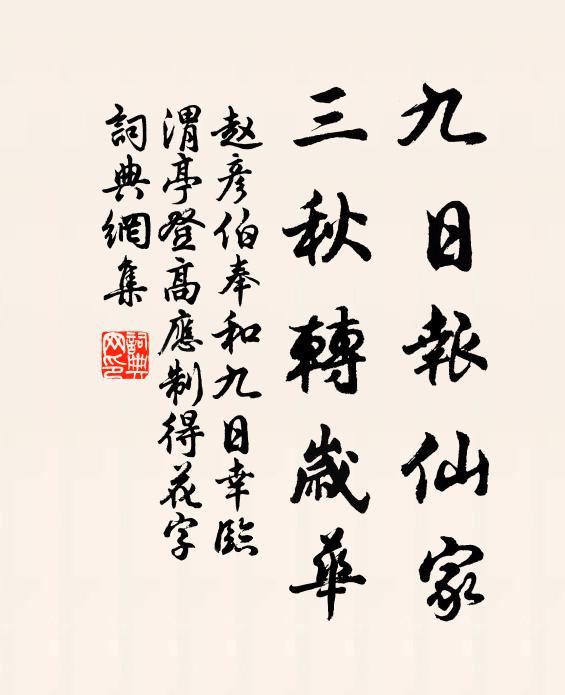 九日報仙家
三秋轉歲華
赵彦伯奉和九日幸臨
渭亭登高應制得花字
詞典網集
詞典網印